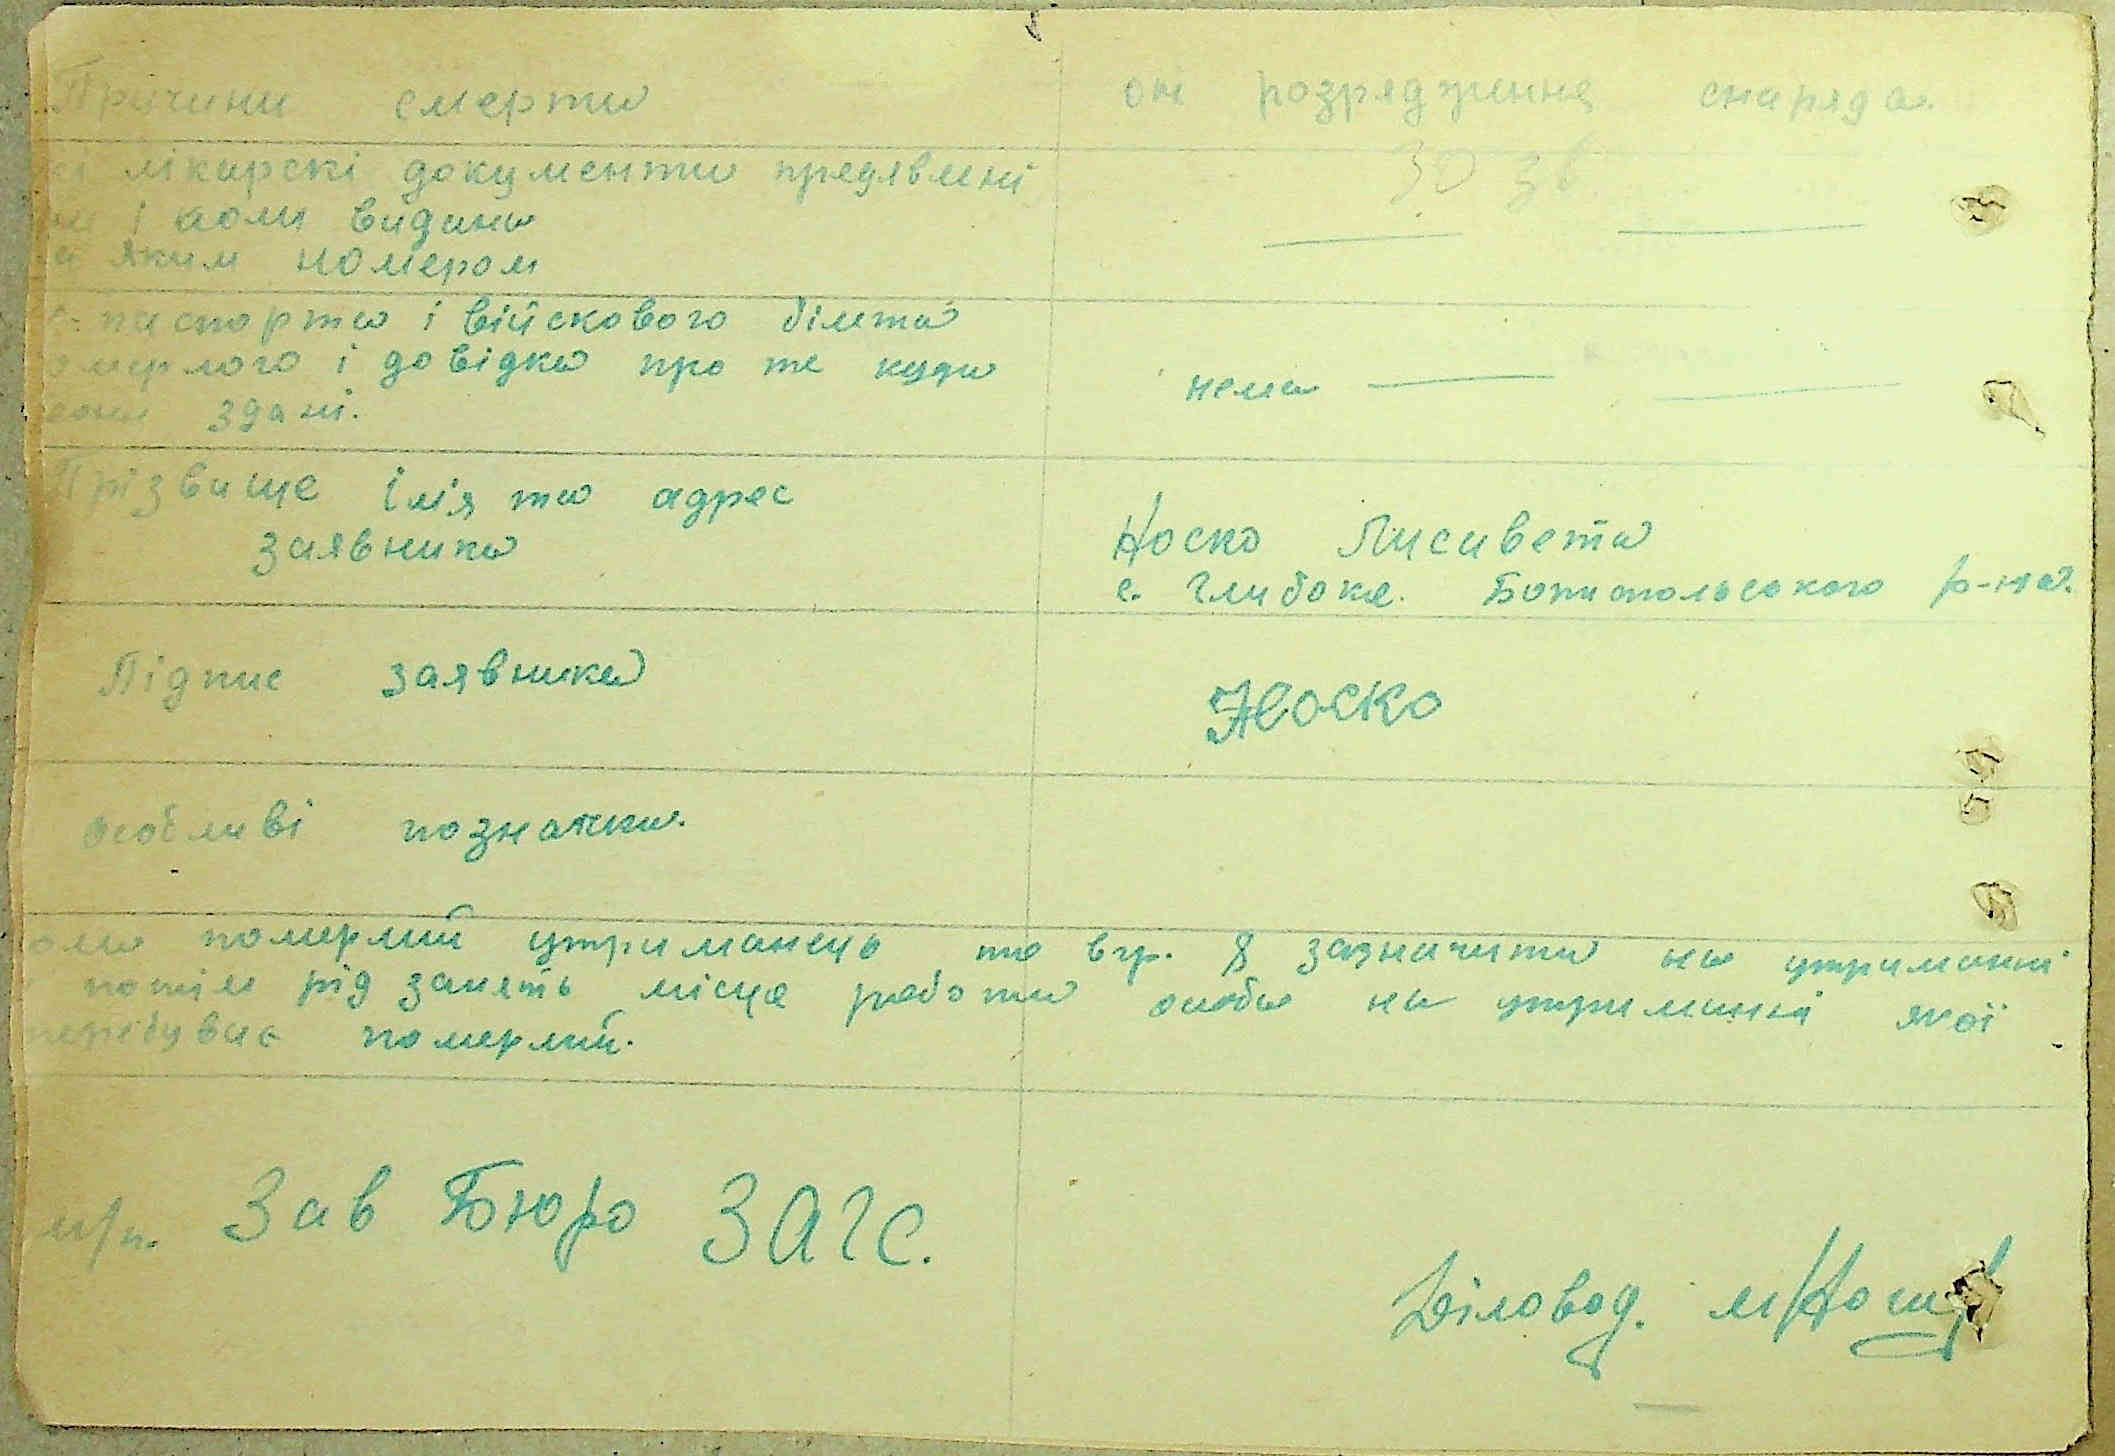 Причини смерти
от розрядження снаряда.
30 зв.
лікарскі документи предявлені
і коли видани
яким номером
паспорта і війскового білета
померлого і довідка про те куди
здані.
нема
Прізвище імя та адрес
заявника
Носко Лисавета
с. Глибоке. Бориспольского р-на.
Підпис заявника
Носко
Особливі позначки.
померлий утриманець то в гр. 8 зазначити на утриманні
потім рід занять місце работи особи на утриманні якої
перебував померлий.
м/п. Зав Бюро ЗАГС.
Діловод.